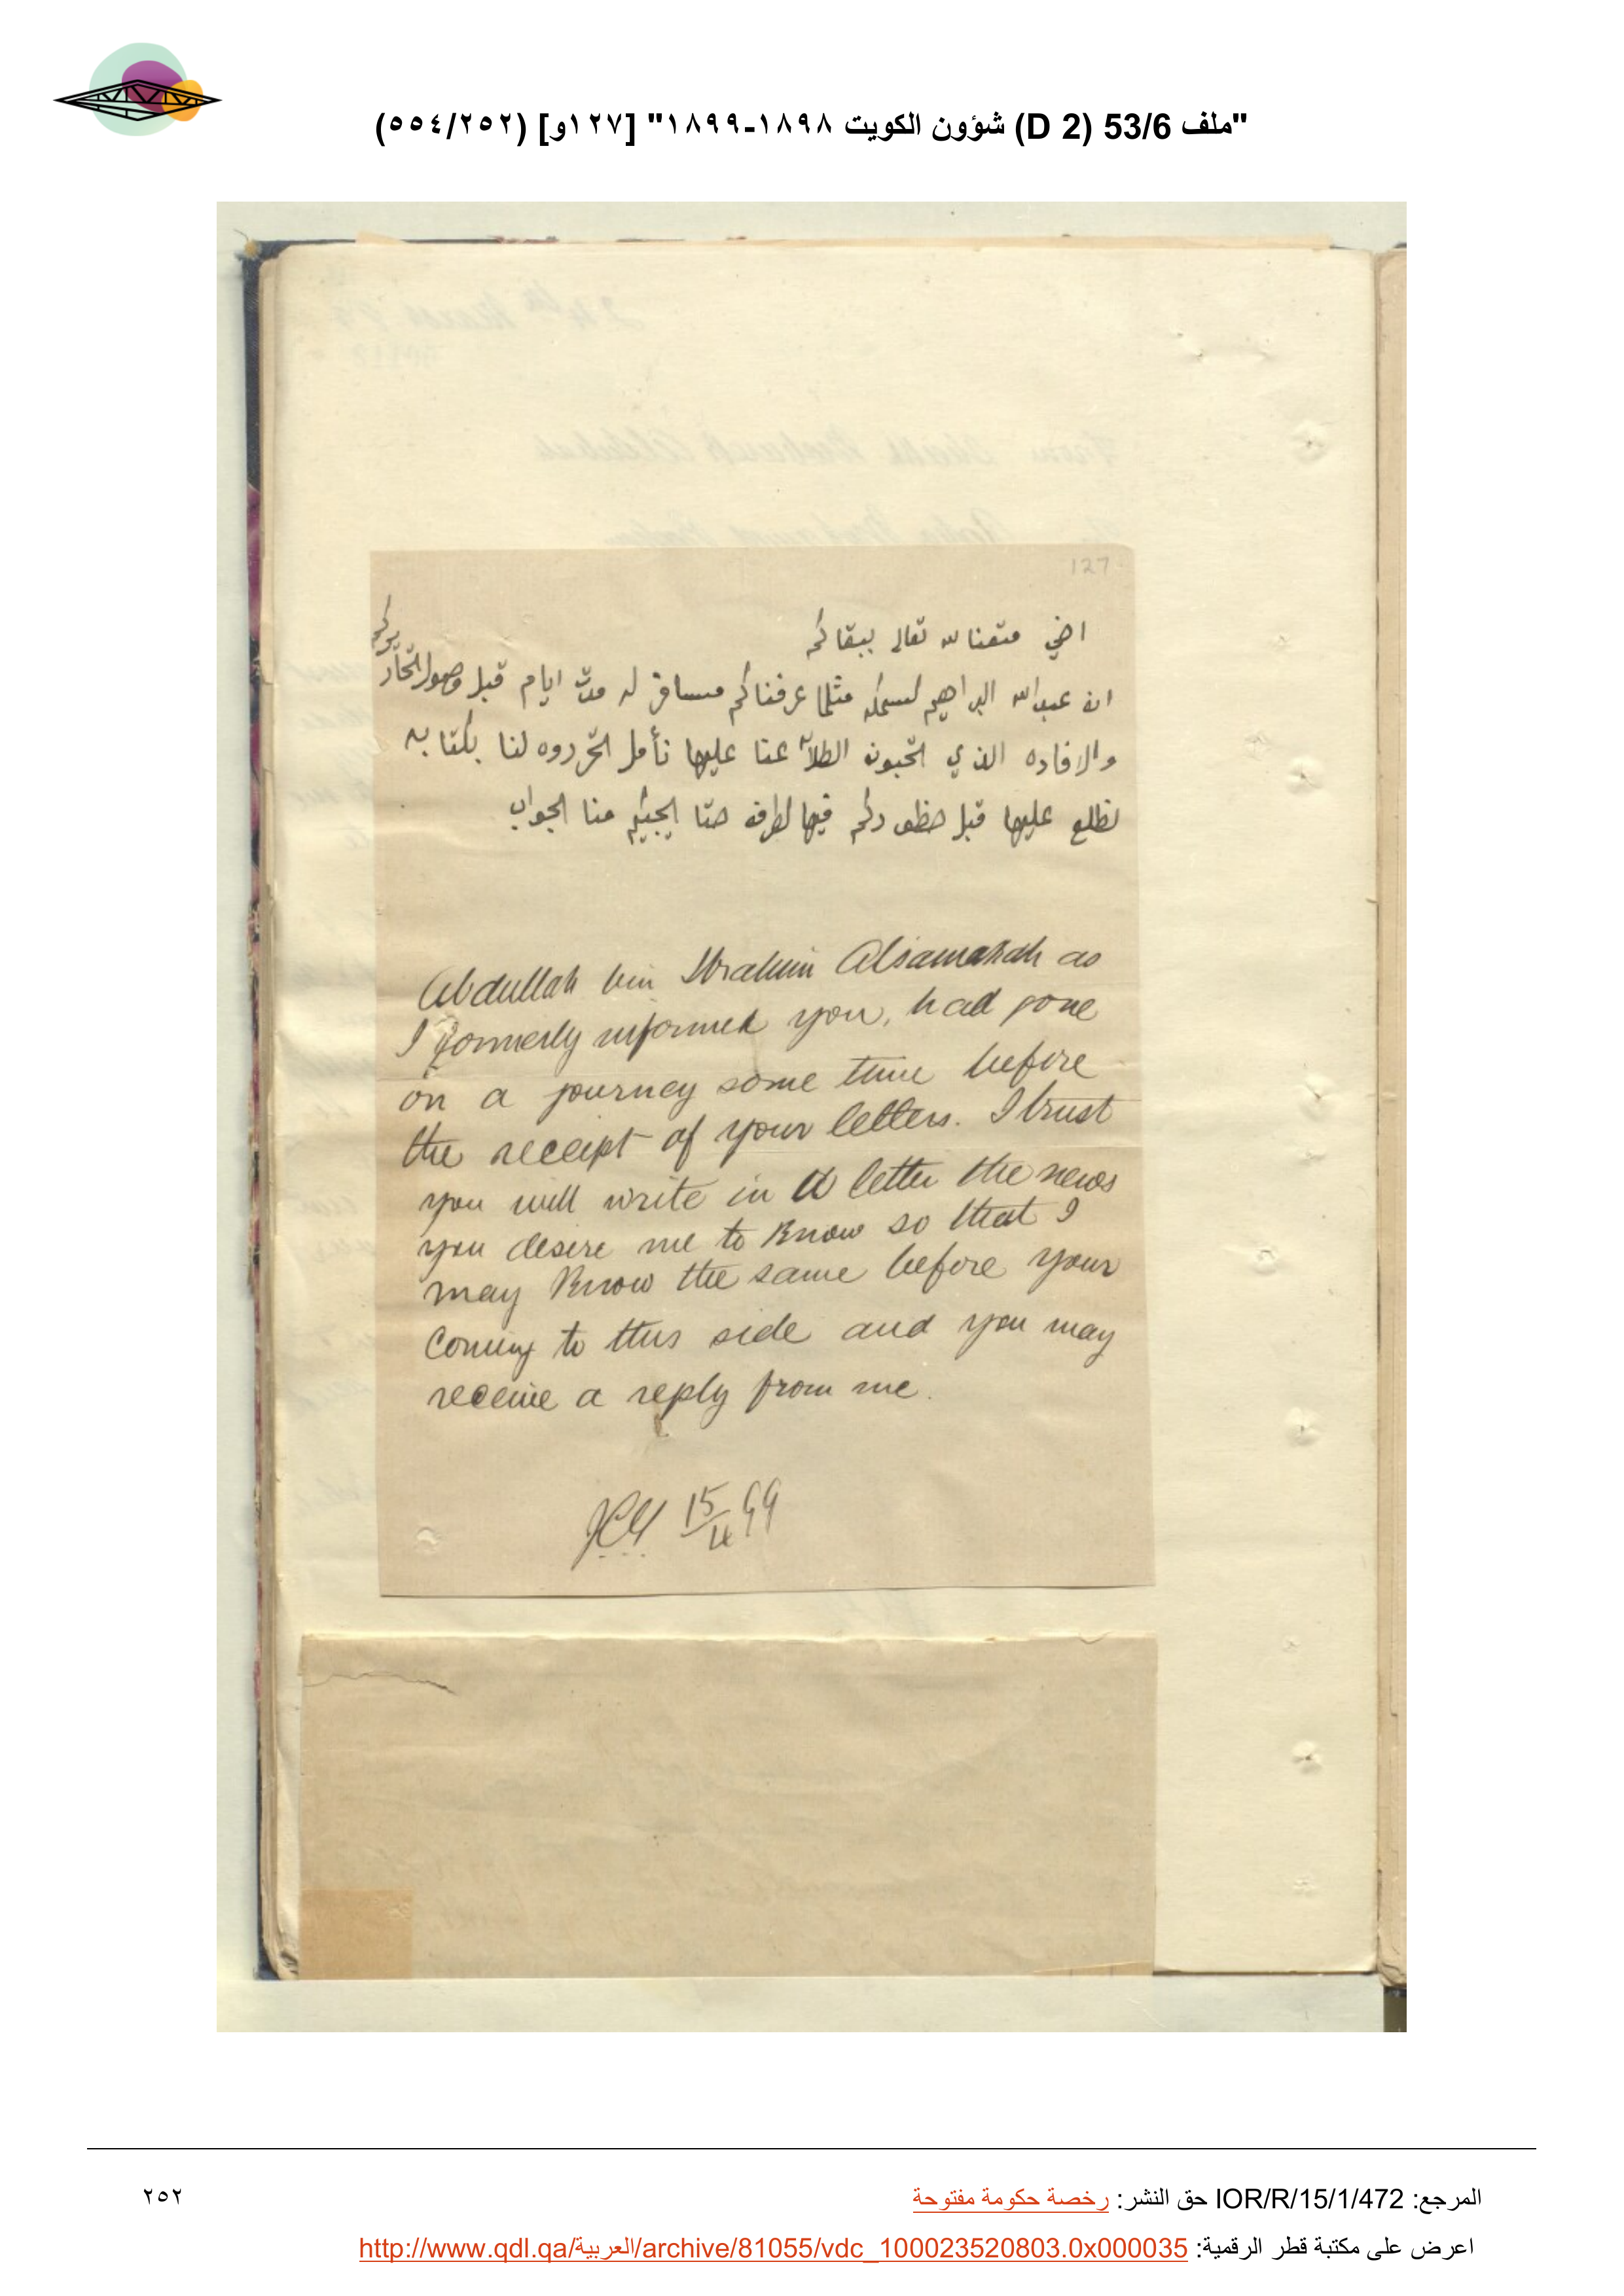 "ملف 53/6 (D 2) شؤون الكويت ١٨٩٨-١٨٩٩" [١٢٧و] (٥٥٤/٢٥٢)
127
اخي متعنا الله تعالى ببقاكم
ان عبدالله البراهيم لسمكه مثلما عرفناكم مسافر له مدت ايام قبل وصول
والافاده الذي اتحبون عنا عليها نأمل اتحرروه لنا بكتابه
نطلع عليها قبل حظوركم فيها لطرفه حتا ايجيكم منا الجواب
Abdullah bin Ibrahim Alsamakah as
I formerly informed you, had gone
on a journey some time before
the receipt of your letters. I trust
you will write in a letter the news
you desire me to know so that I
may know the same before your
coming to this side and you may
receive a reply from me.
15/4 99
المرجع: IOR/R/15/1/472 حق النشر: رخصة حكومة مفتوحة
٢٥٢
اعرض على مكتبة قطر الرقمية: http://www.qdl.qa/العربية/archive/81055/vdc_100023520803.0x000035